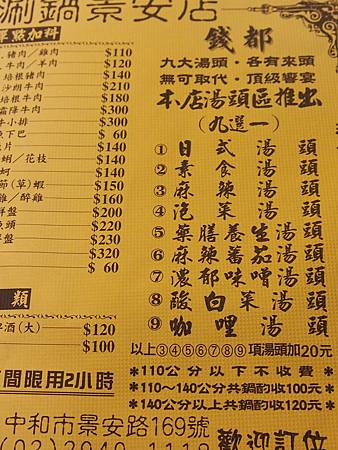 涮鍋景安店
單點加料
豬肉／雞肉 $110
牛肉／羊肉 $120
培根豬肉 $140
沙朗牛肉 $210
培根牛肉 $180
霜降牛肉 $300
牛小排 $300
魚下巴 $ 60
片 $140
蜊／花枝 $140
蚵 $140
節(草)蝦 $150
雞／醉雞 $160
拼盤 $200
頭 $220
拼盤 $230
$320
$ 60
類
啤酒(大) $120
$100
間限用2小時
錢都
九大湯頭・各有來頭
無可取代・頂級饗宴
本店湯頭區推出
(九選一)
①日式湯頭
②素食湯頭
③麻辣湯頭
④泡菜湯頭
⑤藥膳養生湯頭
⑥麻辣蕃茄湯頭
⑦濃郁味噌湯頭
⑧酸白菜湯頭
⑨咖哩湯頭
以上③④⑤⑥⑦⑧⑨項湯頭加20元
*110公分以下不收費*
*110～140公分共鍋酌收100元*
*140公分以上共鍋酌收120元*
中和市景安路169號
(02)2940-1118
歡迎訂位